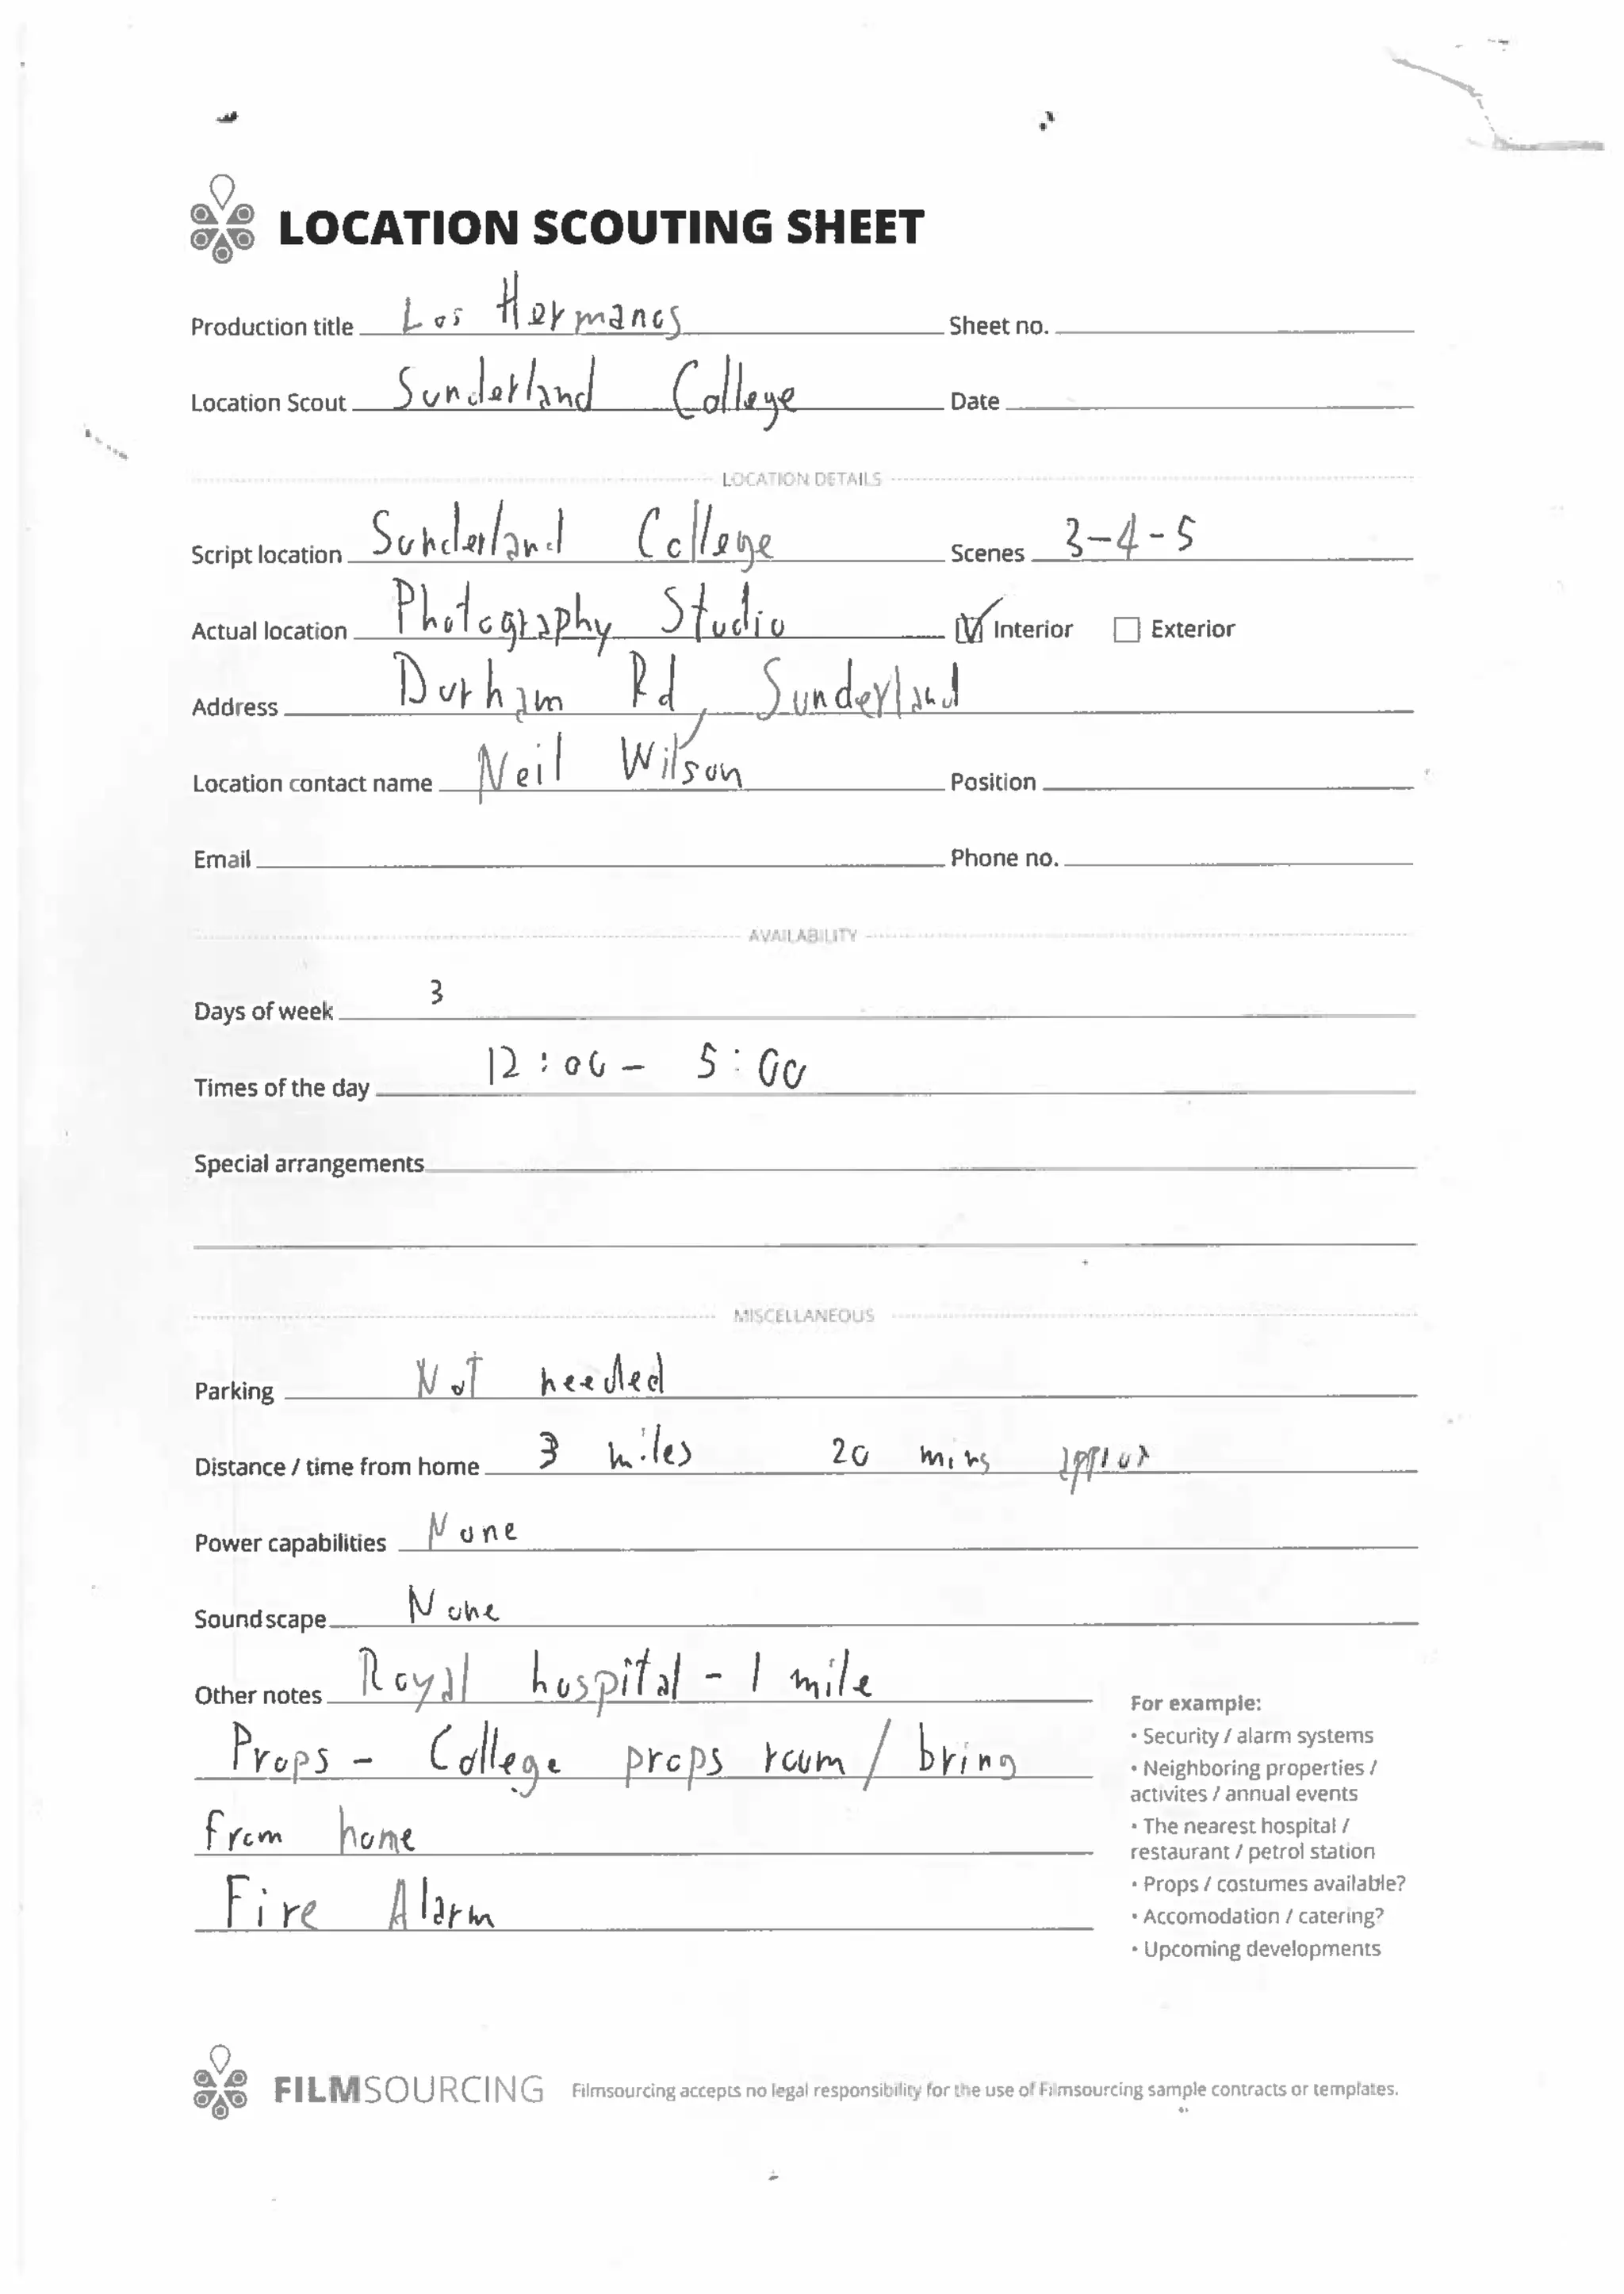 LOCATION SCOUTING SHEET
Production title Los Hermanos Sheet no.
Location Scout Sunderland College Date
LOCATION DETAILS
Script location Sunderland College Scenes 3-4-5
Actual location Photography Studio Interior Exterior
Address Durham Rd, Sunderland
Location contact name Neil Wilson Position
Email Phone no.
AVAILABILITY
Days of week 3
Times of the day 12:00 - 5:00
Special arrangements
MISCELLANEOUS
Parking Not needed
Distance / time from home 3 miles 20 mins approx
Power capabilities None
Soundscape None
Other notes Royal hospital - 1 mile
Props - College props room / bring
from home
Fire Alarm
For example:
• Security / alarm systems
• Neighboring properties /
activites / annual events
• The nearest hospital /
restaurant / petrol station
• Props / costumes available?
• Accomodation / catering?
• Upcoming developments
FILMSOURCING Filmsourcing accepts no legal responsibility for the use of Filmsourcing sample contracts or templates.